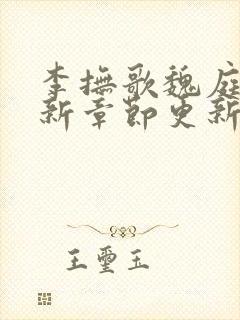 李撫歌魏庭
新章節更新
王璽玉